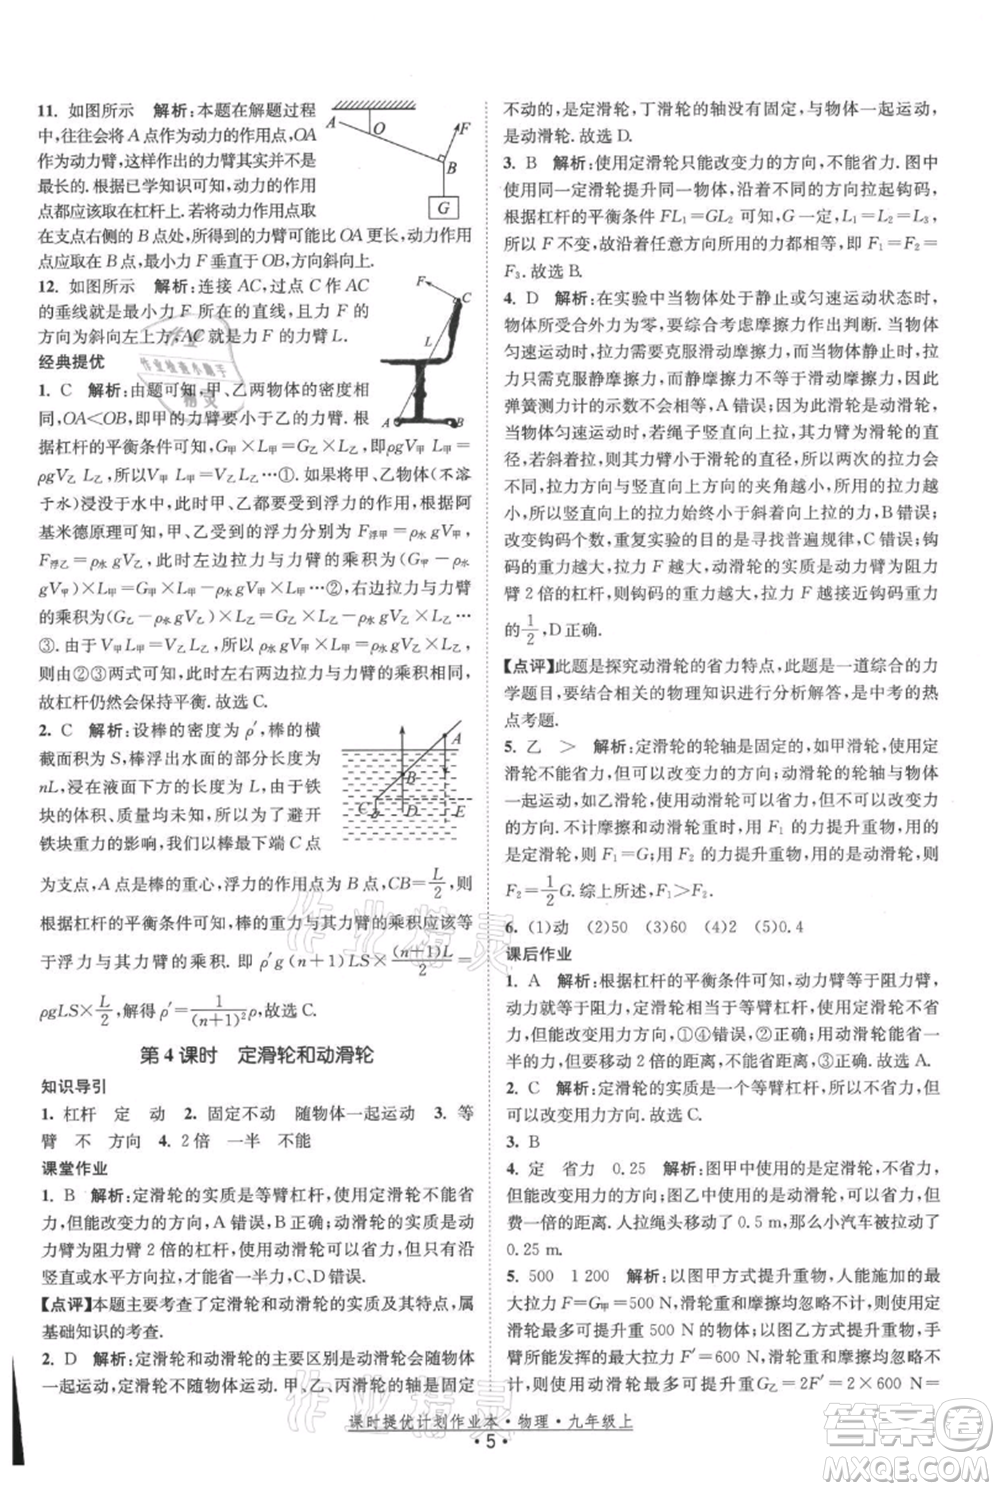 11. 如图所示　解析:本题在解题过程
中,往往会将 A 点作为动力的作用点,OA
作为动力臂,这样作出的力臂其实并不是
最长的.根据已学知识可知,动力的作用
点都应该取在杠杆上,动力的作用点可以
在支点右侧的 B 点处,所得到的力臂可能比 OA 更长,动力作用
点应取在 B 点,且最小力 F 垂直于 OB,方向斜向上.
12. 如图所示　解析:连接 AC,过点 C 作 AC
的垂线就是最小力 F 所在的直线,且力 F 的
方向为斜向左上方,AC 就是力 F 的力臂 L.
经典提优
1. C　解析:由题可知,甲、乙两物体的密度相
同,OA<OB,即甲的力臂要小于乙的力臂,根
据杠杆的平衡条件可知 G甲×L甲=G乙×L乙,即ρgV甲 L甲=
ρgV乙 L乙,所以 V甲 L甲=V乙 L乙…①.若将甲、乙物体(不溶
于水)浸没于水中,此时甲、乙都要受到浮力的作用,根据阿
基米德原理可知,甲、乙受到的浮力分别为 F浮甲=ρ水 gV甲,
F浮乙=ρ水 gV乙,此时左边拉力与力臂的乘积为(G甲-
ρ水 gV甲)×L甲=G甲×L甲-ρ水 gV甲×L甲…②,右边拉力与力臂
的乘积为(G乙-ρ水 gV乙)×L乙=G乙×L乙-ρ水 gV乙×L乙…
③.由于 V甲 L甲=V乙 L乙,所以 ρ水 gV甲×L甲=ρ水 gV乙×
L乙,则由②③两式可知,此时左、右两边拉力与力臂的乘积相等,
故杠杆仍然会保持平衡.故选 C.
2. C　解析:设棒的密度为 ρ′,棒的横
截面积为 S,棒浮出水面的长度为
nL,浸在液面下的长度为 L,由于铁
块的体积未知,所以为了避开
铁块重力的影响,我们以棒下端
为支点,A点为棒的重心,浮力的作用点在 B 点,CB=L/2,
根据杠杆的平衡条件可知,棒的重力与其力臂的乘积应该等
于浮力与其力臂的乘积.即 ρ′g(n+1)LS×(n+1)L/2=
ρgLS×L/2,ρ′=1/(n+1)²ρ,故选 C.
第 4 课时　定滑轮和动滑轮
知识导引
1. 杠杆　定　动　2. 固定不动　随物体一起运动　3. 等
臂　不　方向　4. 2 倍　一半　不能
课堂作业
1. B　解析:定滑轮的实质是等臂杠杆,使用定滑轮不省力,
但能改变力的方向,A 错误,B 正确;动滑轮的实质是动力
臂为阻力臂 2 倍的杠杆,不能改变力的方向,但不一定沿
竖直或水平方向,能省一半力,C、D 均错误.
【点评】本题主要考查了定滑轮和动滑轮的实质及其特点,属
基础知识的考查.
2. D　解析:定滑轮和动滑轮的主要区别是动滑轮会随物体
一起运动,定滑轮则固定不动.甲、乙、丙滑轮的轴都是固定
不动的,是定滑轮,丁滑轮的轴没有固定,与物体一起运动,
是动滑轮.故选 D.
3. B　解析:使用定滑轮只能改变力的方向,不能省力.图中
使用同一定滑轮提升同一物体,沿着不同的方向拉起钩码,
根据杠杆的平衡条件 FL₁=GL₂ 可知,G 一定,L₁=L₂=L₃,
所以 F 不变,故沿着任意方向所用的力都相等,即 F₁=F₂=
F₃.故选 B.
4. D　解析:在实验中当物体处于静止或匀速运动状态时,
物体所受合外力为零,主要根据摩擦力作出判断.当物体
匀速运动时,拉力只需克服滑动摩擦力,而当物体静止时,
拉力只需克服静摩擦力,两次的摩擦力大小不一样,所以
弹簧测力计的示数不同,A 错误;如果是动滑轮,钩码重物
匀速运动时,若绳子竖直向上拉,其力臂为滑轮的直径,若
斜着向上拉,其力臂小于滑轮的直径,所以两次的拉力大
小不同,拉力的方向与竖直方向的夹角越小,拉力也越
小,竖直向上的拉力始终小于斜着向上的拉力,B 错误;
改变钩码个数多次实验的目的是为了寻找普遍规律,C 错误;钩
码的重力越大,拉力就越大,动滑轮的实质是动力臂为阻力
臂 2 倍的杠杆,则钩码的重力越大,拉力越接近钩码重力
的1/2,D 正确.
【点评】此题是探究动滑轮的省力特点,此题是一道综合的力
学题目,要结合相关的物理知识进行分析解答,是中考的热
点考题.
5. 乙　>　解析:定滑轮的轮轴是固定的,如甲滑轮,使用
定滑轮不能省力,但能改变力的方向;动滑轮的轮轴与物体
一起运动,如乙滑轮,使用动滑轮能省力,但不能改变力的方
向.不计摩擦和动滑轮重时,用 F₁ 的力提升重物,使用的是定
滑轮,F₁=G;用 F₂ 的力提升重物,使用的是动滑轮,
F₂=1/2G.综上所述,F₁>F₂.
6. (1)动　(2)50　(3)60　(4)2　(5)0.4
课后作业
1. A　解析:根据杠杆的平衡条件可知,动力臂等于阻力臂,
动力就等于阻力,定滑轮相当于等臂杠杆,定滑轮不省力,
但能改变力的方向,①④错误,②正确;使用动滑轮能省一
半的力,但要移动 2 倍的距离,不能改变力的方向,③正确.
2. C　解析:定滑轮的实质是一个等臂杠杆,使用它不省力,
但可以改变用力方向.故选 C.
3. B
4. 定　省力　0.25　解析:图甲中使用的是定滑轮,只能改
变力的方向,不能省力;图乙中使用的是动滑轮,能省力,但
费一半的距离.人拉绳头移动0.5 m,那么小汽车被拉动了
0.25 m.
5. 500　1 200　解析:以图甲方式提升重物,人能施加的最
大拉力 F=G甲=500 N,滑轮重和摩擦均忽略不计,所以提
升的最大物重是 500 N;以图乙方式提升重物,手
臂所能发挥的最大拉力 F′=600 N,则提升的最大物重 G乙=
2F′,滑轮重和摩擦均忽略不计,所以 G乙=2F′=2×600 N
课时提优计划作业本·物理·九年级上
·5·
A
O
F
B
G
F
C
L
A
B
A
B
C
D
E
作业精灵
作业精灵
答案圈
MXQE.COM